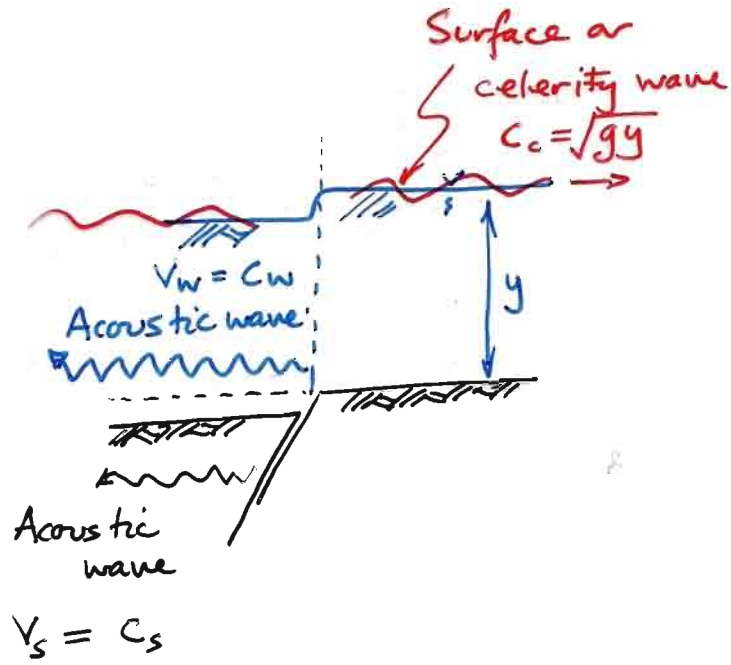 Surface or
celerity wave
C_c = √gy
V_w = C_w
Acoustic wave
y
Acoustic
wave
V_s = C_s